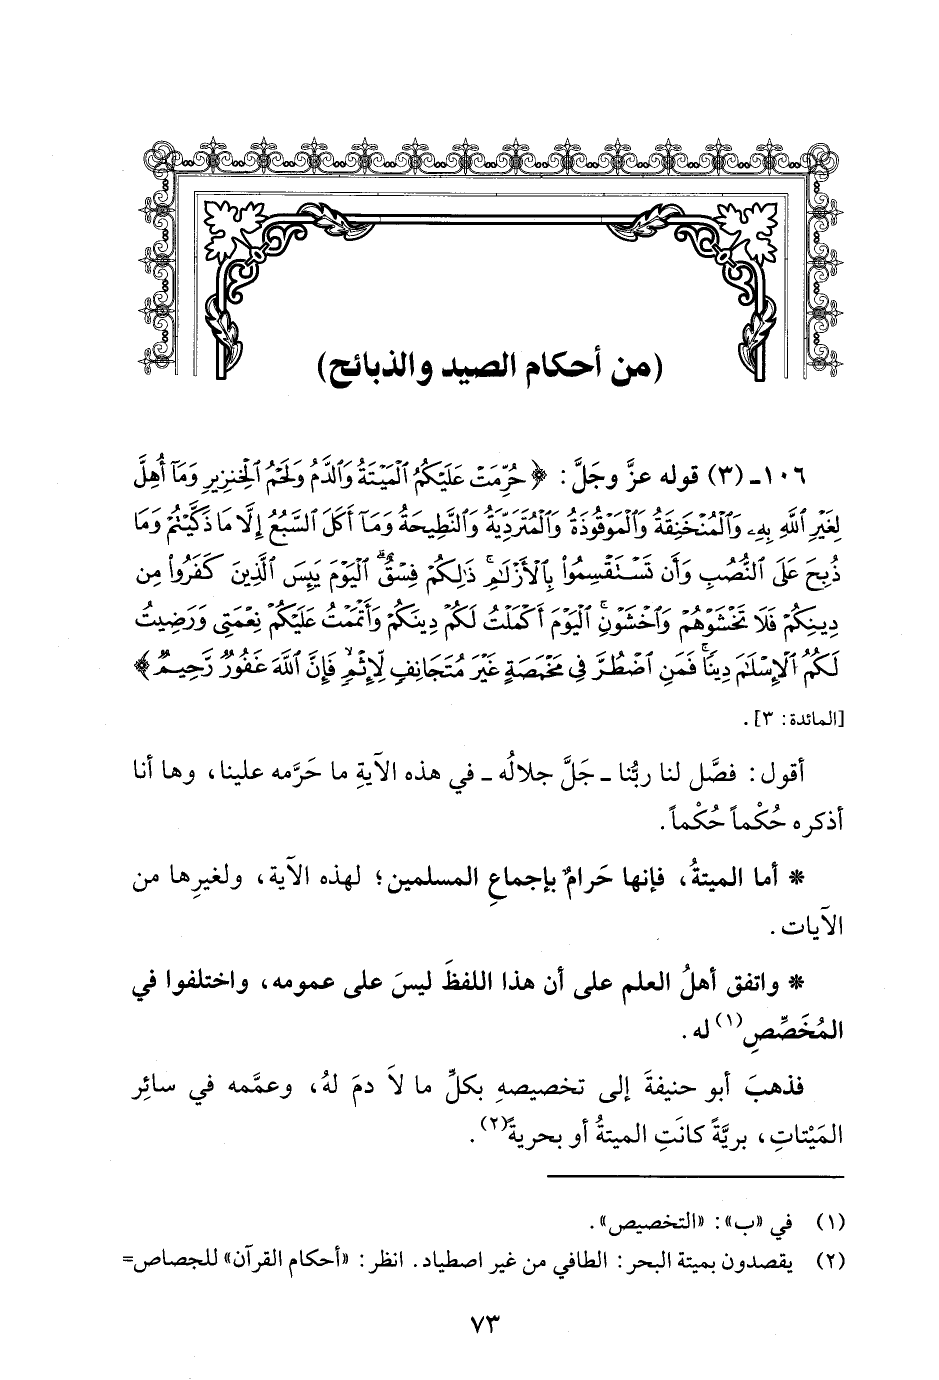 (من أحكام الصيد والذبائح)
١٠٦ - (٣) قوله عزَّ وجَلَّ: ﴿حُرِّمَتْ عَلَيْكُمُ ٱلْمَيْتَةُ وَٱلدَّمُ وَلَحْمُ ٱلْخِنزِيرِ وَمَآ أُهِلَّ
لِغَيْرِ ٱللَّهِ بِهِۦ وَٱلْمُنْخَنِقَةُ وَٱلْمَوْقُوذَةُ وَٱلْمُتَرَدِّيَةُ وَٱلنَّطِيحَةُ وَمَآ أَكَلَ ٱلسَّبُعُ إِلَّا مَا ذَكَّيْتُمْ وَمَا
ذُبِحَ عَلَى ٱلنُّصُبِ وَأَن تَسْتَقْسِمُوا۟ بِٱلْأَزْلَٰمِ ۚ ذَٰلِكُمْ فِسْقٌ ۗ ٱلْيَوْمَ يَئِسَ ٱلَّذِينَ كَفَرُوا۟ مِن
دِينِكُمْ فَلَا تَخْشَوْهُمْ وَٱخْشَوْنِ ۚ ٱلْيَوْمَ أَكْمَلْتُ لَكُمْ دِينَكُمْ وَأَتْمَمْتُ عَلَيْكُمْ نِعْمَتِى وَرَضِيتُ
لَكُمُ ٱلْإِسْلَٰمَ دِينًا ۚ فَمَنِ ٱضْطُرَّ فِى مَخْمَصَةٍ غَيْرَ مُتَجَانِفٍ لِّإِثْمٍ ۙ فَإِنَّ ٱللَّهَ غَفُورٌ رَّحِيمٌ﴾
[المائدة: ٣].
أقول: فصَّل لنا ربُّنا - جَلَّ جلالُه - في هذه الآيةِ ما حَرَّمه علينا، وها أنا
أذكره حُكْماً حُكْماً.
* أما الميتةُ، فإنها حَرامٌ بإجماعِ المسلمين؛ لهذه الآية، ولغيرِها من
الآيات.
* واتفق أهلُ العلم على أن هذا اللفظَ ليسَ على عمومه، واختلفوا في
المُخَصِّصِ(١) له.
فذهبَ أبو حنيفةَ إلى تخصيصهِ بكلِّ ما لاَ دمَ لهُ، وعمَّمه في سائِر
المَيْتاتِ، بريَّةً كانَتِ الميتةُ أو بحريةً(٢).
(١) في «ب»: «التخصيص».
(٢) يقصدون بميتة البحر: الطافي من غير اصطياد. انظر: «أحكام القرآن» للجصاص=
٧٣